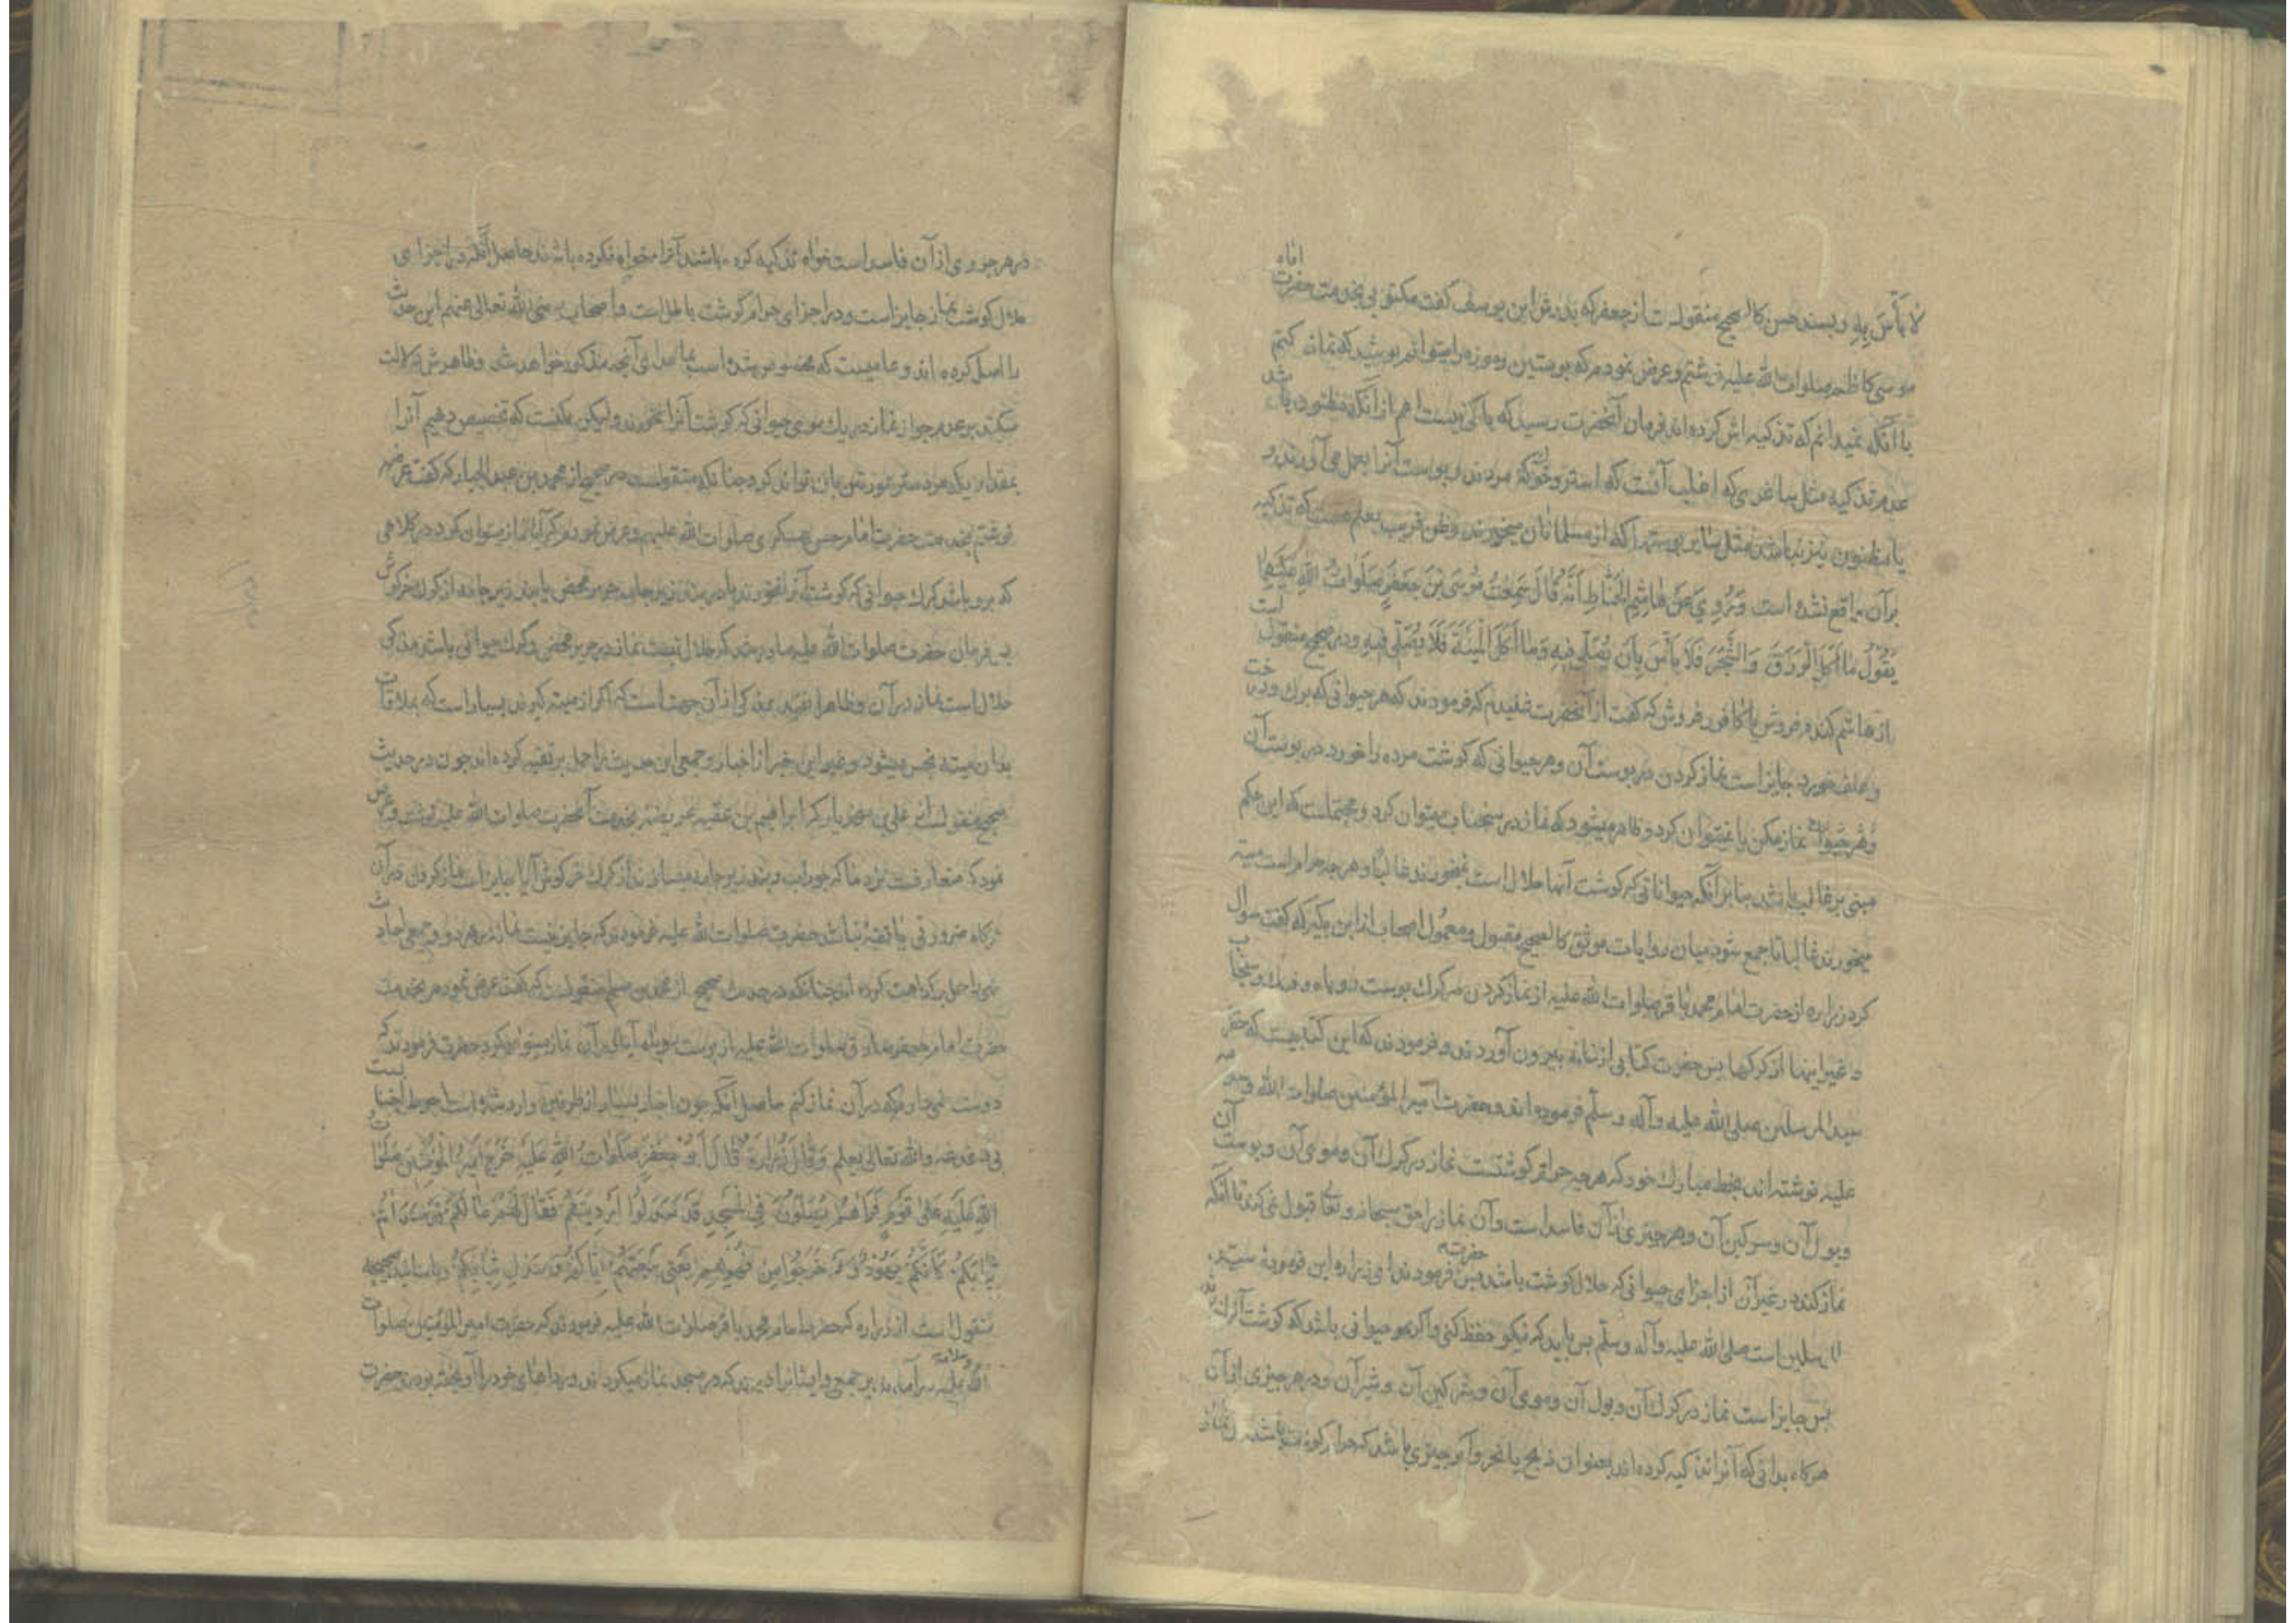 لَا بَأْسَ بِهِ و بسند حسن كالصحيح منقولست از جعفر كه بدرش ابن يوسف كفت مكتوبى بخدمت حضرت امام
موسى كاظم صلوات الله عليه نوشتم و عرض نمودم كه پوستين و موزه را ميتوانم پوشيد كه نماز كنم
با آنكه نميدانم كه تذكيه اش كرده‌اند فرمان آنحضرت رسيد كه باكى نيست اعم از آنكه مظنون باشد
عدم تذكيه مثل ساغرى كه اغلب آنست كه استر و خر كه مردند و پوست آنرا بعمل مى‌آورند و
يا مظنون نيز نباشد مثل ساير پوستها كه از مسلمانان ميخرند و ظن قريب بعلم هست كه تذكيه
بر آن واقع نشده است وَ رُوِيَ عَنْ هَاشِمِ الْحَنَّاطِ أَنَّهُ قَالَ سَمِعْتُ مُوسَى بْنَ جَعْفَرٍ صَلَوَاتُ اللهِ عَلَيْهِمَا
يَقُولُ مَا أَكَلَ الْوَرَقَ وَ الشَّجَرَ فَلَا بَأْسَ بِأَنْ يُصَلَّى فِيهِ وَ مَا أَكَلَ الْمَيْتَةَ فَلَا يُصَلَّى فِيهِ و در صحيح منقول است
از هاشم كندم فروش يا كافور فروش كه كفت از آنحضرت شنيدم كه فرمودند كه هر حيوانى كه برك درخت
و علف خورد جايز است نماز كردن در پوست آن و هر حيوانى كه كوشت مرده را خورد در پوست آن
نماز مكن يا نميتوان كرد و ظاهر ميشود كه نماز در سنجاب ميتوان كرد و محتملست كه اين حكم
مبنى بر غالب باشد بنا بر آنكه حيواناتى كه كوشت آنها حلال است نميخورند غالبا و هر چه حرام است ميته
ميخورند غالبا تا جمع شود ميان روايات موثق كالصحيح مقبول و معمول اصحاب از ابن بكير كه كفت سوال
كرد زراره از حضرت امام محمد باقر صلوات الله عليه از نماز كردن در كرك پوست روباه و فنك و سنجاب
و غير اينها از كركها پس حضرت كتابى از خانه بيرون آوردند و فرمودند كه اين كتابيست كه حضرت
سيد المرسلين صلى الله عليه و آله و سلّم فرموده‌اند و حضرت امير المؤمنين صلوات الله و سلامه
عليه نوشته‌اند بخط مبارك خود كه هر چه حرام كوشتست نماز در كرك آن و موى آن و پوست آن
و بول آن و سركين آن و هر چيزى از آن فاسد است و آن نماز را حق سبحانه و تعالى قبول نمى‌كند تا آنكه
نماز كند در غير آن از اجزاى حيوانى كه حلال كوشت باشد پس حضرت فرمودند اى زراره اين فرموده سيد
المرسلين است صلى الله عليه و آله و سلّم پس بايد كه نيكو حفظ كنى و اكر مو حيوانى باشد كه كوشت آنرا
پس جايز است نماز در كرك آن و بول آن و موى آن و سركين آن و شير آن و در هر چيزى از آن
هركاه بدانى كه آنرا تذكيه كرده‌اند بعنوان ذبح يا نحر و اكر چيزى باشد كه حرام كوشت باشد پس نماز
در هر جزوى از آن فاسد است خواه تذكيه كرده باشند آنرا و خواه نكرده باشند حاصل آنكه در اجزاى
حلال كوشت نماز جايز است و در اجزاى حرام كوشت باطل است و اصحاب رضى الله تعالى عنهم اين حديث
را اصل كرده‌اند و عاميست كه مخصوص شده است بما عداى آنچه مذكور خواهد شد و ظاهرش دلالت
ميكند بر عدم جواز نماز در يك موى حيوانى كه كوشت آنرا نخورند و ليكن ممكنست كه تخصيص دهيم آنرا
بمقدار يكه مرد ستر عورتش بآن تواند كرد چنانكه منقولست در صحيح از محمد بن عبد الجبار كه كفت عريضه
نوشتم بخدمت حضرت امام حسن عسكرى صلوات الله عليهم و عرض نمودم كه آيا نماز ميتوان كرد در كلاهى
كه برو باشد كرك حيوانى كه كوشت آنرا نخورند يا در بند زير جامه حرير محض يا بند زير جامه از كرك خركوش
پس فرمان حضرت صلوات الله عليه صادر شد كه حلال نيست نماز در حرير محض و كرك حيوانى باشد مذكى
حلال است نماز در آن و ظاهرا تقييد بمذكى از آن جهت است كه اكر از ميته كيرند بسيار است كه بملاقات
بدان ميته نجس ميشود و غير اين خبر از اخبار و جمعى اين حديث را حمل بر تقيه كرده‌اند چون در حديث
صحيح منقولست از على بن مهزيار كه ابراهيم بن عقبه عريضه بخدمت آنحضرت صلوات الله عليه نوشت و عرض
نمود كه متعارفست نزد ما كه جوراب و بند زير جامه ميسازند از كرك خركوش آيا جايز است نماز كردن در آن
هركاه ضرورتى يا تقيه نباشد حضرت صلوات الله عليه فرمودند كه جايز نيست نماز در هر دو و جمعى احاديث
نهى را حمل بر كراهت كرده‌اند چنانكه در حديث صحيح از محمد بن مسلم منقولست كه كفت عرض نمودم بخدمت
حضرت امام جعفر صادق صلوات الله عليه از پوست روباه آيا در آن نماز ميتوان كرد حضرت فرمودند كه
دوست نمى‌دارم كه در آن نماز كنم حاصل آنكه چون اخبار بسيار از طرفين وارد شده است احوط اجتناب
بى دغدغه و الله تعالى يعلم وَ قَالَ زُرَارَةُ قَالَ أَبُو جَعْفَرٍ صَلَوَاتُ اللهِ عَلَيْهِ خَرَجَ أَمِيرُ الْمُؤْمِنِينَ صَلَوَاتُ
اللهِ عَلَيْهِ عَلَى قَوْمٍ فَرَآهُمْ يُصَلُّونَ فِي الْمَسْجِدِ قَدْ سَدَلُوا أَرْدِيَتَهُمْ فَقَالَ لَهُمْ مَا لَكُمْ قَدْ سَدَلْتُمْ
ثِيَابَكُمْ كَأَنَّكُمْ يَهُودُ قَدْ خَرَجُوا مِنْ فُهْرِهِمْ يَعْنِي بِيعَتِهِمْ إِيَّاكُمْ وَ سَدْلَ ثِيَابِكُمْ و باسانيد صحيحه
منقول است از زراره كه حضرت امام محمد باقر صلوات الله عليه فرمودند كه حضرت امير المؤمنين صلوات
الله و سلامه عليه بر آمدند بر جمعى و ايشانرا ديدند كه در مسجد نماز ميكردند و رداهاى خود را آويخته بودند حضرت